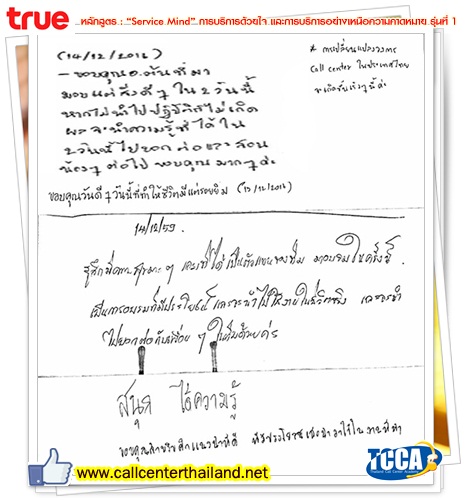 true หลักสูตร : “Service Mind” การบริการด้วยใจ และการบริการอย่างเหนือความคาดหมาย รุ่นที่ 1
(14/12/2016)
- ขอบคุณอ.ต้นที่มา
มอบแต่สิ่งดีๆใน 2 วันนี้
หากไม่นำไปปฏิบัติไม่เกิด
ผล จะนำความรู้ที่ได้ใน
2 วันนี้ไปบอกต่อและสอน
น้องๆ ต่อไป ขอบคุณมากๆค่ะ
* การเปลี่ยนแปลงวงการ
Call center ในประเทศไทย
จะเกิดขึ้นเร็วๆนี้ค่ะ
ขอบคุณวันดีๆวันนี้ที่ทำให้ชีวิตมีแต่รอยยิ้ม (13/12/2016)
14/12/59
รู้สึกมีความสุขมากๆ และที่ได้เป็นตัวแทนของทีม มาอบรมในครั้งนี้
เป็นการอบรมที่มีประโยชน์ และจะนำไปใช้งานในชีวิตจริง และจะนำ
ไปบอกต่อกับเพื่อนๆ ในทีมด้วยค่ะ
สนุก ได้ความรู้
ขอบคุณสำหรับ
www.callcenterthailand.net
TCCA
Thailand Call Center Academy